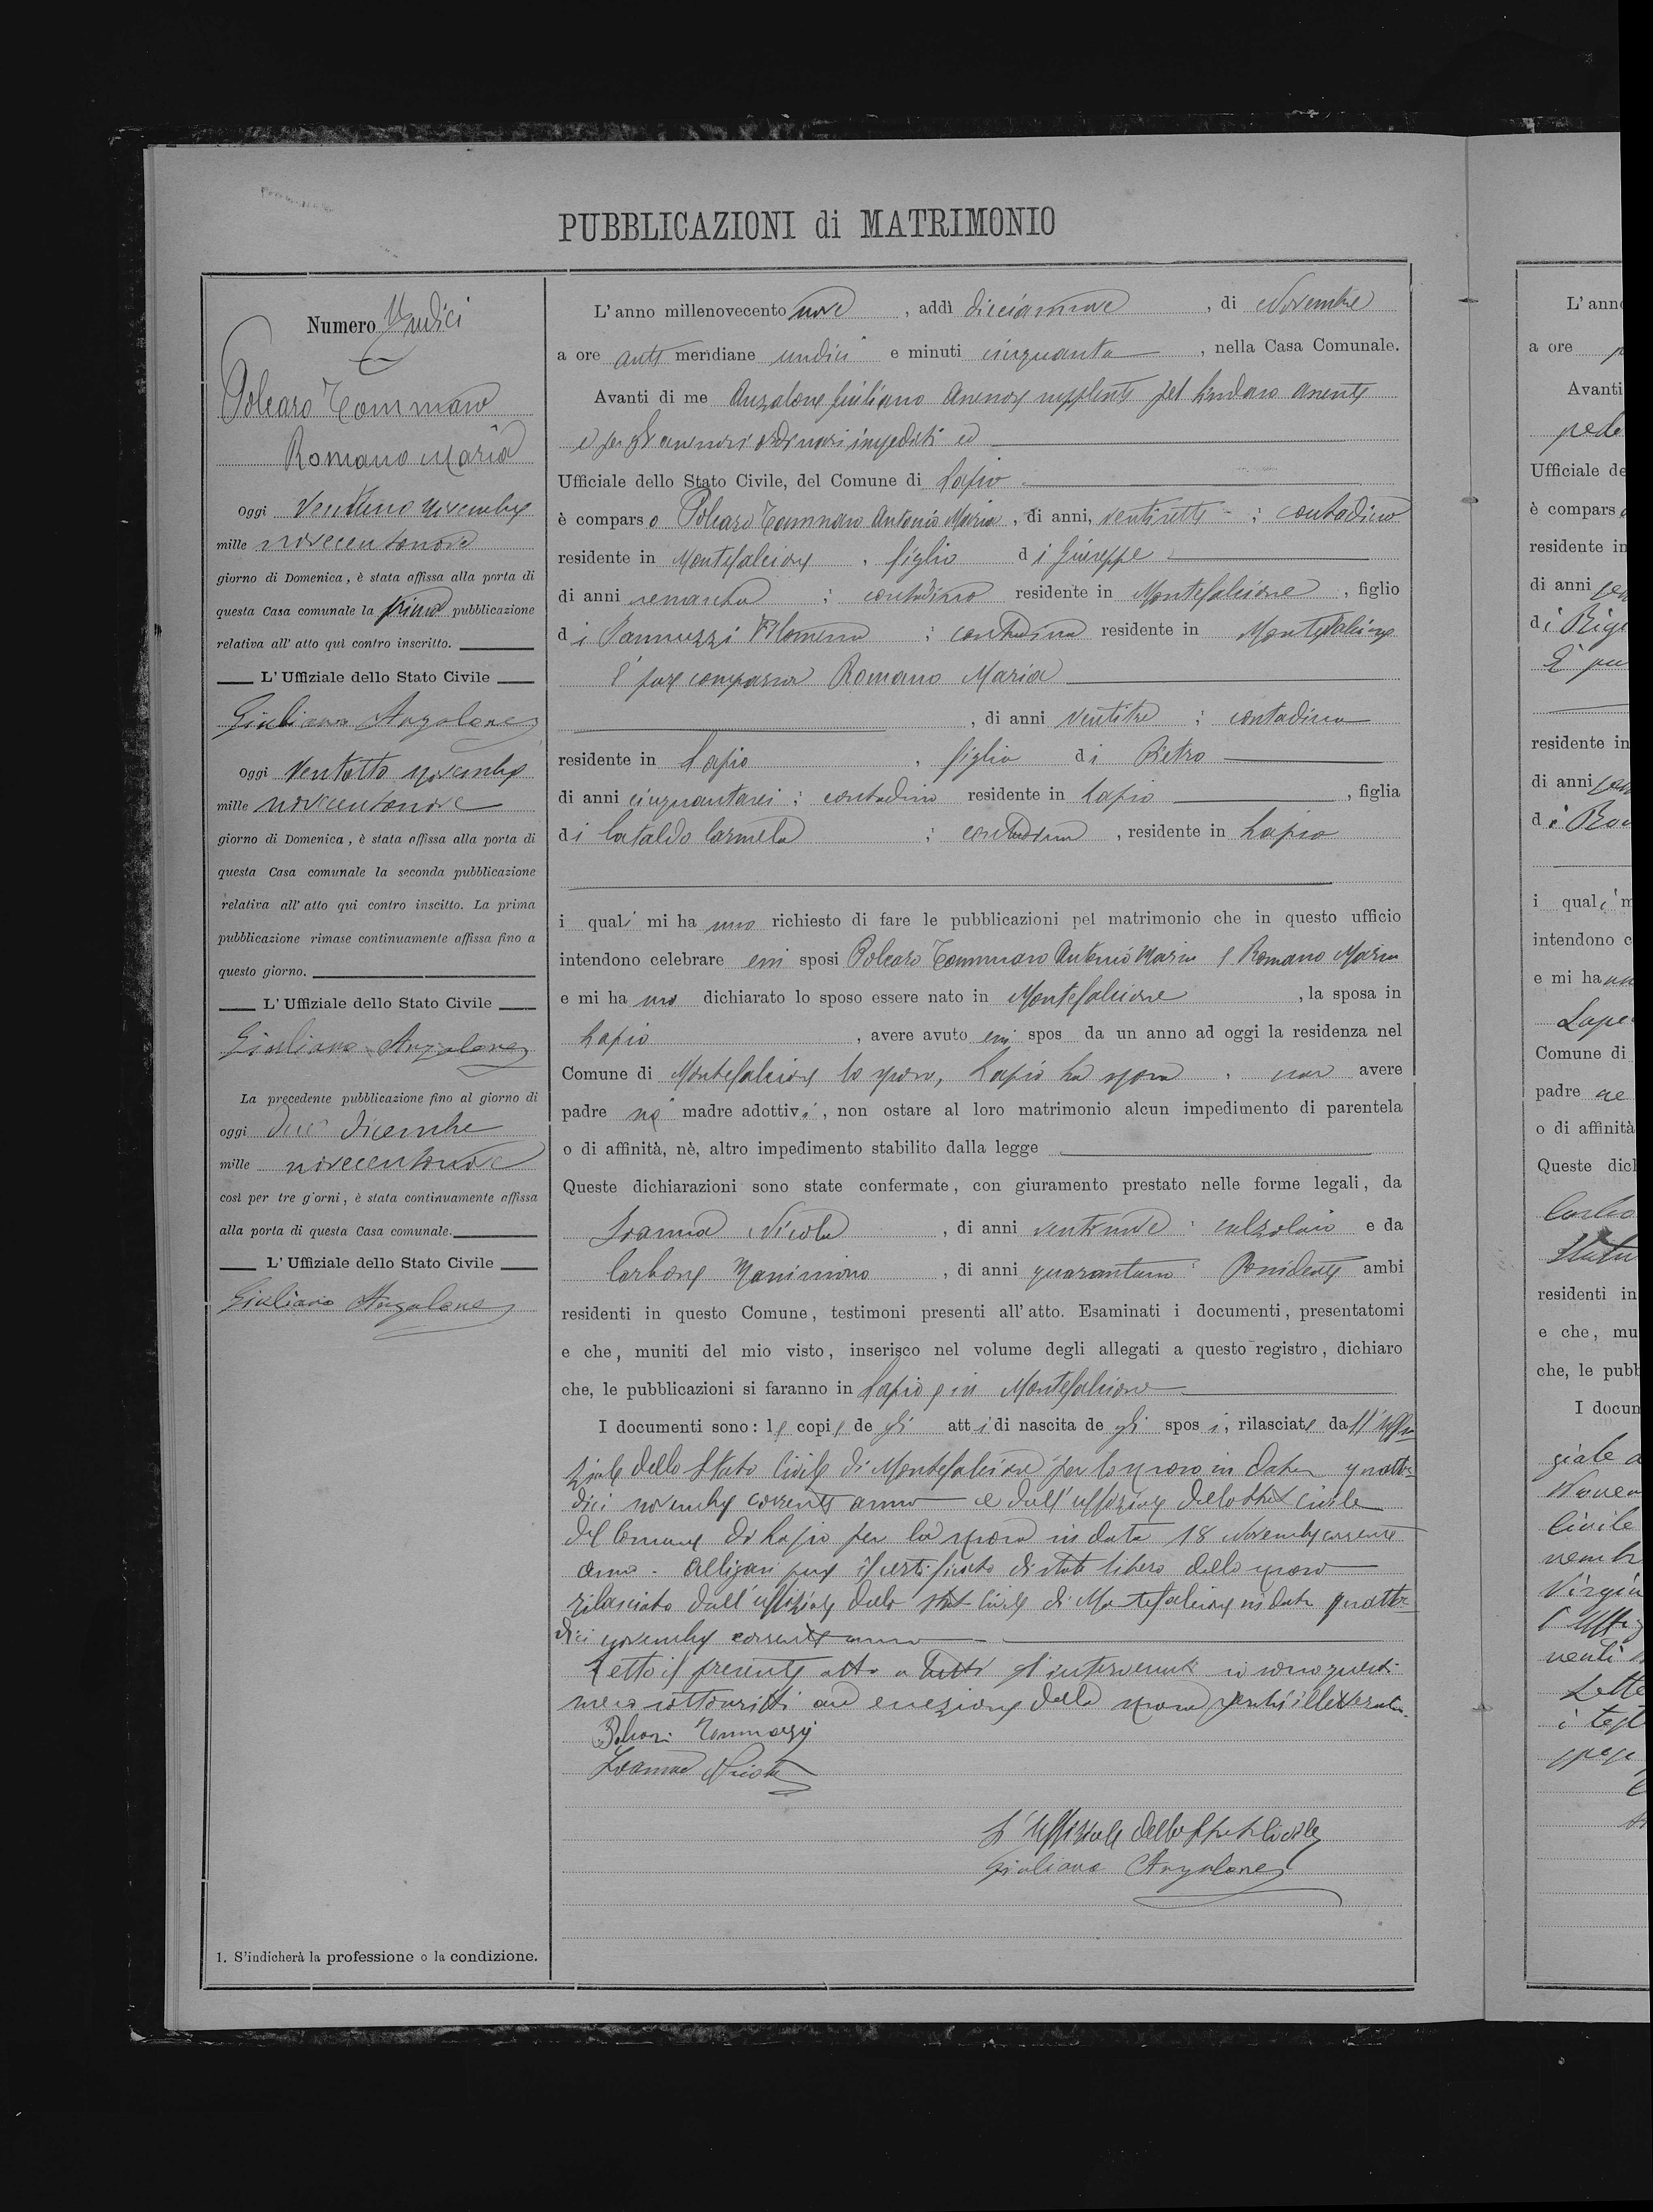 PUBBLICAZIONI di MATRIMONIO
Numero Undici
Polcaro Tommaso
Romano Maria
Oggi Ventuno novembre
mille novecentonove
giorno di Domenica, è stata affissa alla porta di
questa Casa comunale la prima pubblicazione
relativa all' atto quì contro inscritto.
L' Uffiziale dello Stato Civile
Giuliano Anzalone
Oggi Ventotto novembre
mille novecentonove
giorno di Domenica, è stata affissa alla porta di
questa Casa comunale la seconda pubblicazione
relativa all' atto qui contro inscitto. La prima
pubblicazione rimase continuamente affissa fino a
questo giorno.
L' Uffiziale dello Stato Civile
Giuliano Anzalone
La precedente pubblicazione fino al giorno di
oggi due dicembre
mille novecentonove
così per tre giorni, è stata continuamente affissa
alla porta di questa Casa comunale.
L' Uffiziale dello Stato Civile
Giuliano Anzalone
1. S'indicherà la professione o la condizione.
L' anno millenovecento nove, addì diciannove, di Novembre
a ore anti meridiane undici e minuti cinquanta, nella Casa Comunale.
Avanti di me Anzalone Giuliano Assessore supplente pel Sindaco assente
e per gli assessori ordinari impediti ed
Ufficiale dello Stato Civile, del Comune di Lapio
è comparso Polcaro Tommaso Antonio Maria, di anni, ventisette; contadino
residente in Montefalcione, figlio di Giuseppe
di anni sessanta; contadino residente in Montefalcione, figlio
di Iannuzzi Filomena; contadina residente in Montefalcione
È pure comparsa Romano Maria
, di anni ventitre; contadina
residente in Lapio, figlia di Pietro
di anni cinquantasei; contadino residente in Lapio, figlia
di Cataldo Carmela; contadina, residente in Lapio
i quali mi hanno richiesto di fare le pubblicazioni pel matrimonio che in questo ufficio
intendono celebrare essi sposi Polcaro Tommaso Antonio Maria e Romano Maria
e mi hanno dichiarato lo sposo essere nato in Montefalcione, la sposa in
Lapio, avere avuto essi spos da un anno ad oggi la residenza nel
Comune di Montefalcione lo sposo, Lapio la sposa, non avere
padre nè madre adottivi, non ostare al loro matrimonio alcun impedimento di parentela
o di affinità, nè, altro impedimento stabilito dalla legge
Queste dichiarazioni sono state confermate, con giuramento prestato nelle forme legali, da
Ioanna Nicola, di anni ventinove; calzolaio e da
Carbone Massimino, di anni quarantuno; Possidente ambi
residenti in questo Comune, testimoni presenti all' atto. Esaminati i documenti, presentatomi
e che, muniti del mio visto, inserisco nel volume degli allegati a questo registro, dichiaro
che, le pubblicazioni si faranno in Lapio e in Montefalcione
I documenti sono: le copie degli atti di nascita degli sposi, rilasciate dall' Uffi
ziale dello Stato Civile di Montefalcione per lo sposo in data quattor
dici novembre corrente anno e dall' uffiziale dello Stato civile
del Comune di Lapio per la sposa in data 18 Novembre corrente
anno. Alligasi pure il certificato di stato libero dello sposo
rilasciato dall' uffiziale dello stato Civile di Montefalcione in data quattor
dici novembre corrente anno
Letto il presente atto a tutti gl' intervenuti si sono questi
meco sottoscritti ad eccezione della sposa perchè illetterata.
Ioanna Nicola
L' Uffiziale dello Stato Civile
Giuliano Anzalone
L' anno
a ore
Avanti
Ufficiale de
è compars
residente in
di anni
di
residente in
di anni
d
i qual
intendono c
e mi ha
Comune di
padre
o di affinità
Queste dich
residenti in
e che, mu
che, le pubb
I docum